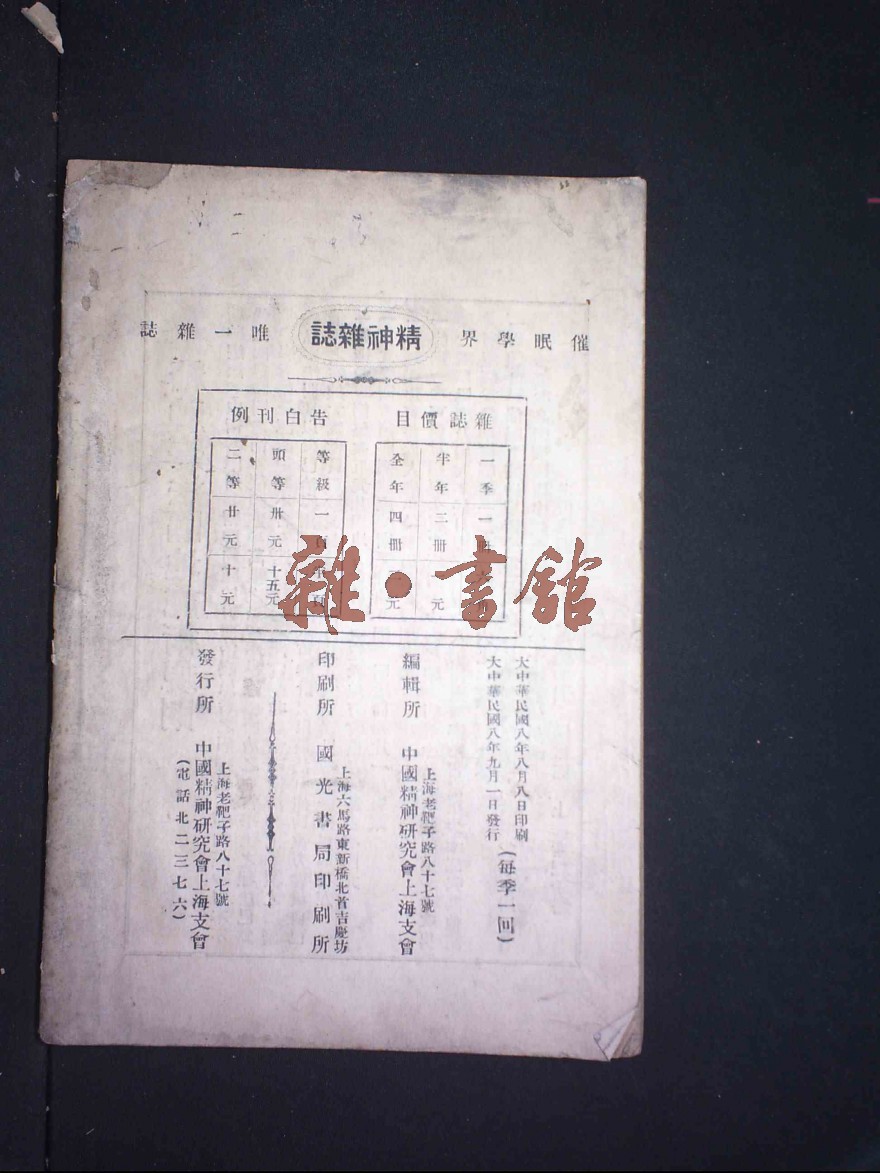 催眠學界 精神雜誌 唯一雜誌
雜誌價目
一季 一
半年 二冊 元
全年 四冊 元
告白刊例
等級 一
頭等 卅元 十五元
二等 廿元 十元
雜·書館
大中華民國八年八月八日印刷
大中華民國八年九月一日發行
(每季一回)
上海老靶子路八十七號
編輯所 中國精神研究會上海支會
上海六馬路東新橋北首吉慶坊
印刷所 國光書局印刷所
上海老靶子路八十七號
發行所 中國精神研究會上海支會
(電話北二三七六)